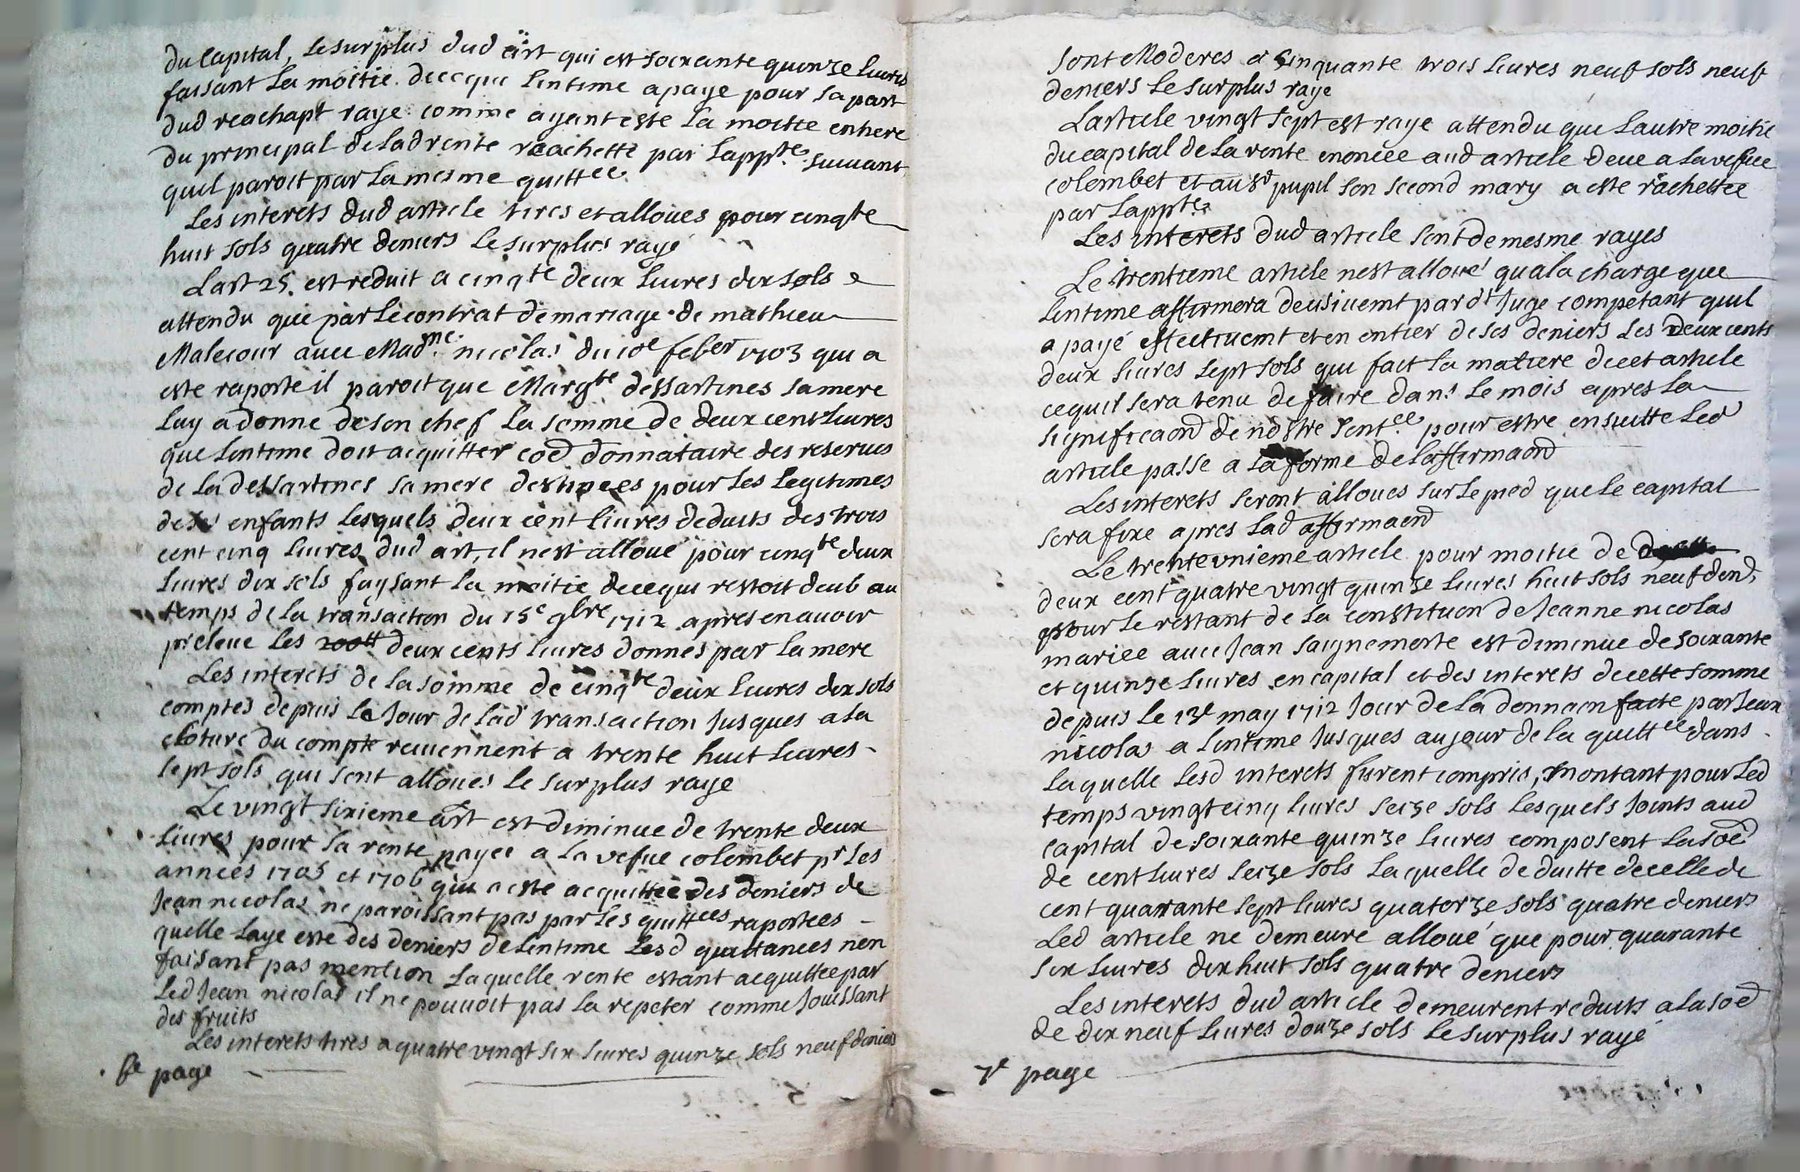 du Capital, le surplus dud art qui est soixante quinze livres
faisant la moitié de ce que lintime a payé pour sa part
dud reachapt rayé comme ayant esté la moitié entiere
du principal de lad rente reachetté par lappte suivant
quil paroit par la mesme quittce
Les interets dud article tirés et alloués pour cinqte
huit sols quatre deniers le surplus rayé
Lart 25. est reduit a cinqte deux livres dix sols
attendu que par le contrat de mariage de mathieu
Malecour avec Madne nicolas du 10e feber 1703 qui a
esté raporté il paroit que Margte dessartines sa mere
luy a donné de son chef la somme de deux cent livres
que lintime doit acquitter coe donnataire des reserves
de la dessartines sa mere destinees pour les legitimes
de ses enfants lesquels deux cent livres deduits des trois
cent cinq livres dud art, il nest alloué pour cinqte deux
livres dix sols faysant la moitié de ce qui restoit deub au
temps de la transaction du 15e 9bre 1712 apres en avoir
preleve les 200tt deux cents livres donnés par la mere
Les interets de la somme de cinqte deux livres dix sols
comptés depuis le jour de lad transaction jusques a la
cloture du compte reviennent a trente huit livres
sept sols qui sont alloues le surplus raye
Le vingt sixieme art est diminue de trente deux
livres pour la rente payee a la vefue colombet pr les
années 1705 et 1706 qui a esté acquittee des deniers de
Jean nicolas ne paroissant pas par les quittces raportees
quelle laye esté des deniers de lintime lesd quittances non
faisant pas mention laquelle rente estant acquittee par
led Jean nicolas il ne pouvoit pas la repeter comme jouissant
des fruits
Les interets tirés a quatre vingt six livres quinze sols neuf deniers
6e page
sont moderes a cinquante trois livres neuf sols neuf
deniers le surplus raye
Larticle vingt sept est raye attendu que lautre moitié
du capital de la rente enoncée aud article deue a la vefue
colombet et au sd pupil son second mary a esté rachettee
par lappte
Les interets dud article sont de mesme rayes
Le trentieme article nest alloué qua la charge que
lintime affirmera par dt Juge competant quil
a payé effectivemt et en entier de ses deniers les deux cents
deux livres sept sols qui fact la matiere de cet article
ce quil sera tenu de faire dans le mois apres la
significaon de nostre sentce pour estre ensuitte led
article passe a la forme de laffirmaon
Les interets seront alloues sur le pied que le capital
sera fixe apres lad affirmaon
Le trente unieme article pour moitie de
deux cent quatre vingt quinze livres huit sols neuf den
pour le restant de la constitution de Jeanne nicolas
mariee avec Jean saignemorte est diminue de soixante
et quinze livres en capital et des interets de cette somme
depuis le 13e may 1712 jour de la donnaon facte par Jean
nicolas a lintime jusques au jour de la quittce dans
laquelle lesd interets furent compris, montant pour led
temps vingt cinq livres seize sols lesquels joints aud
capital de soixante quinze livres composent la soe
de cent livres seize sols laquelle deduitte de celle de
cent quarante sept livres quatorze sols quatre deniers
Led article ne demeure alloué que pour quarante
six livres dix huit sols quatre deniers
Les interets dud article demeurent reduits a la soe
de dix neuf livres douze sols le surplus rayé
7e page